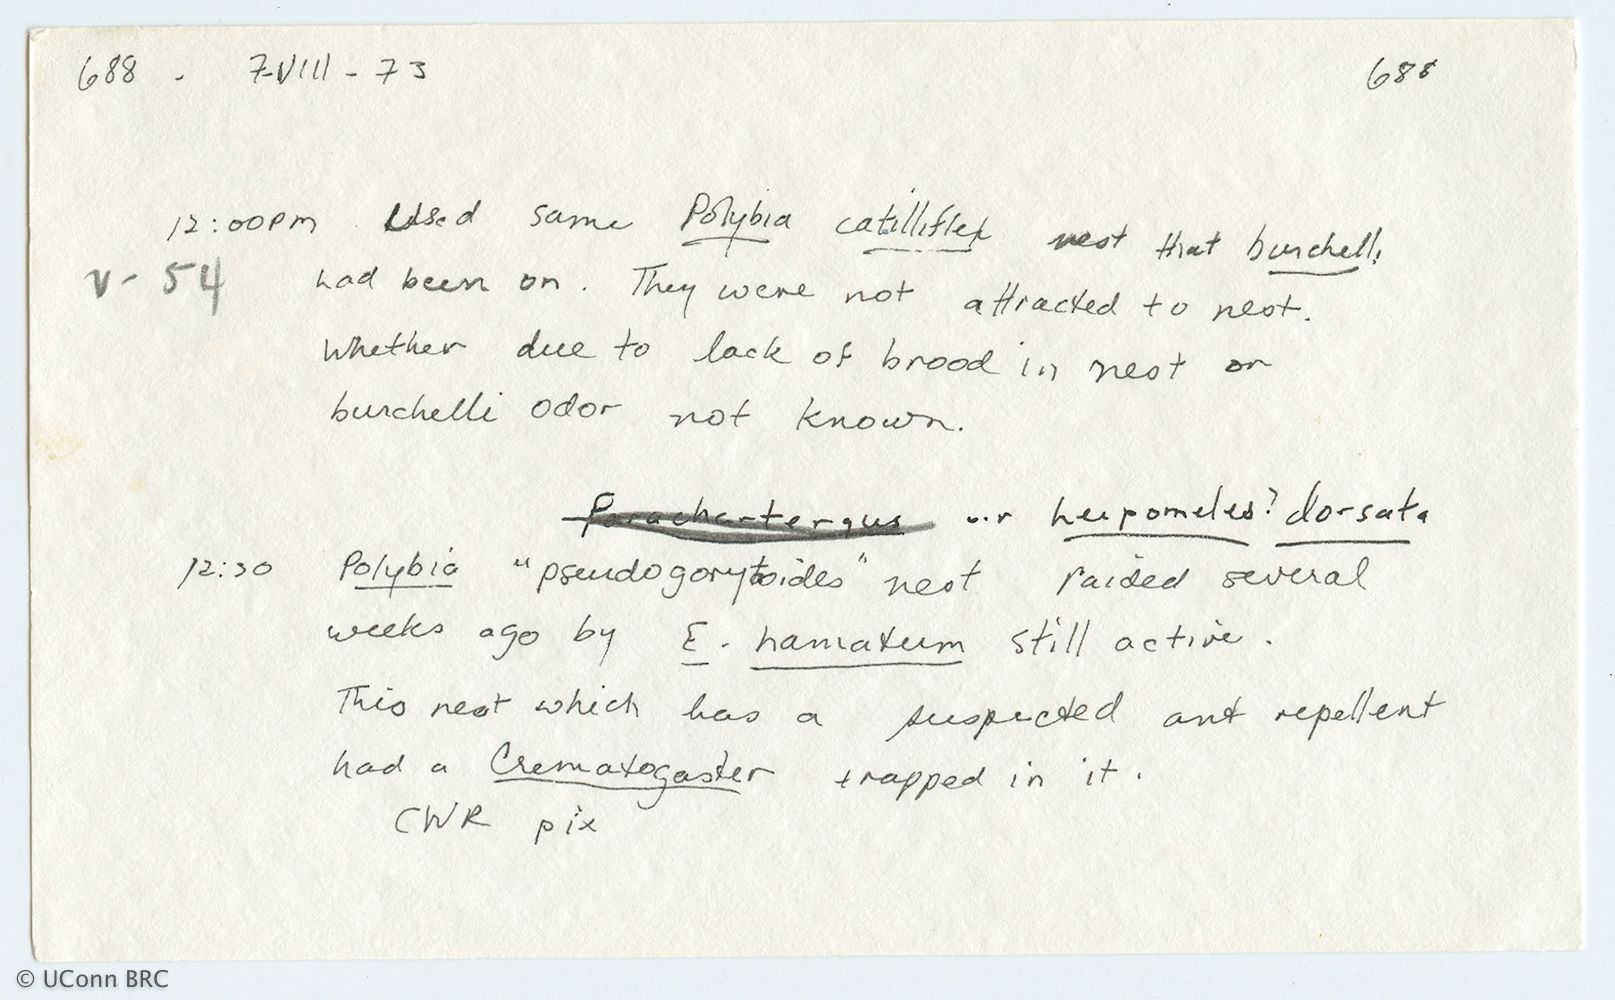 688 - 7-VIII-73 688
12:00pm Used same Polybia catillifex nest that burchelli
v-54 had been on. They were not attracted to nest.
Whether due to lack of brood in nest or
burchelli odor not known.
Parachartergus dorsata
12:30 Polybia "pseudogorytoides" nest raided several
weeks ago by E. hamatum still active.
This nest which has a suspected ant repellent
had a Crematogaster trapped in it.
CWR pix
© UConn BRC